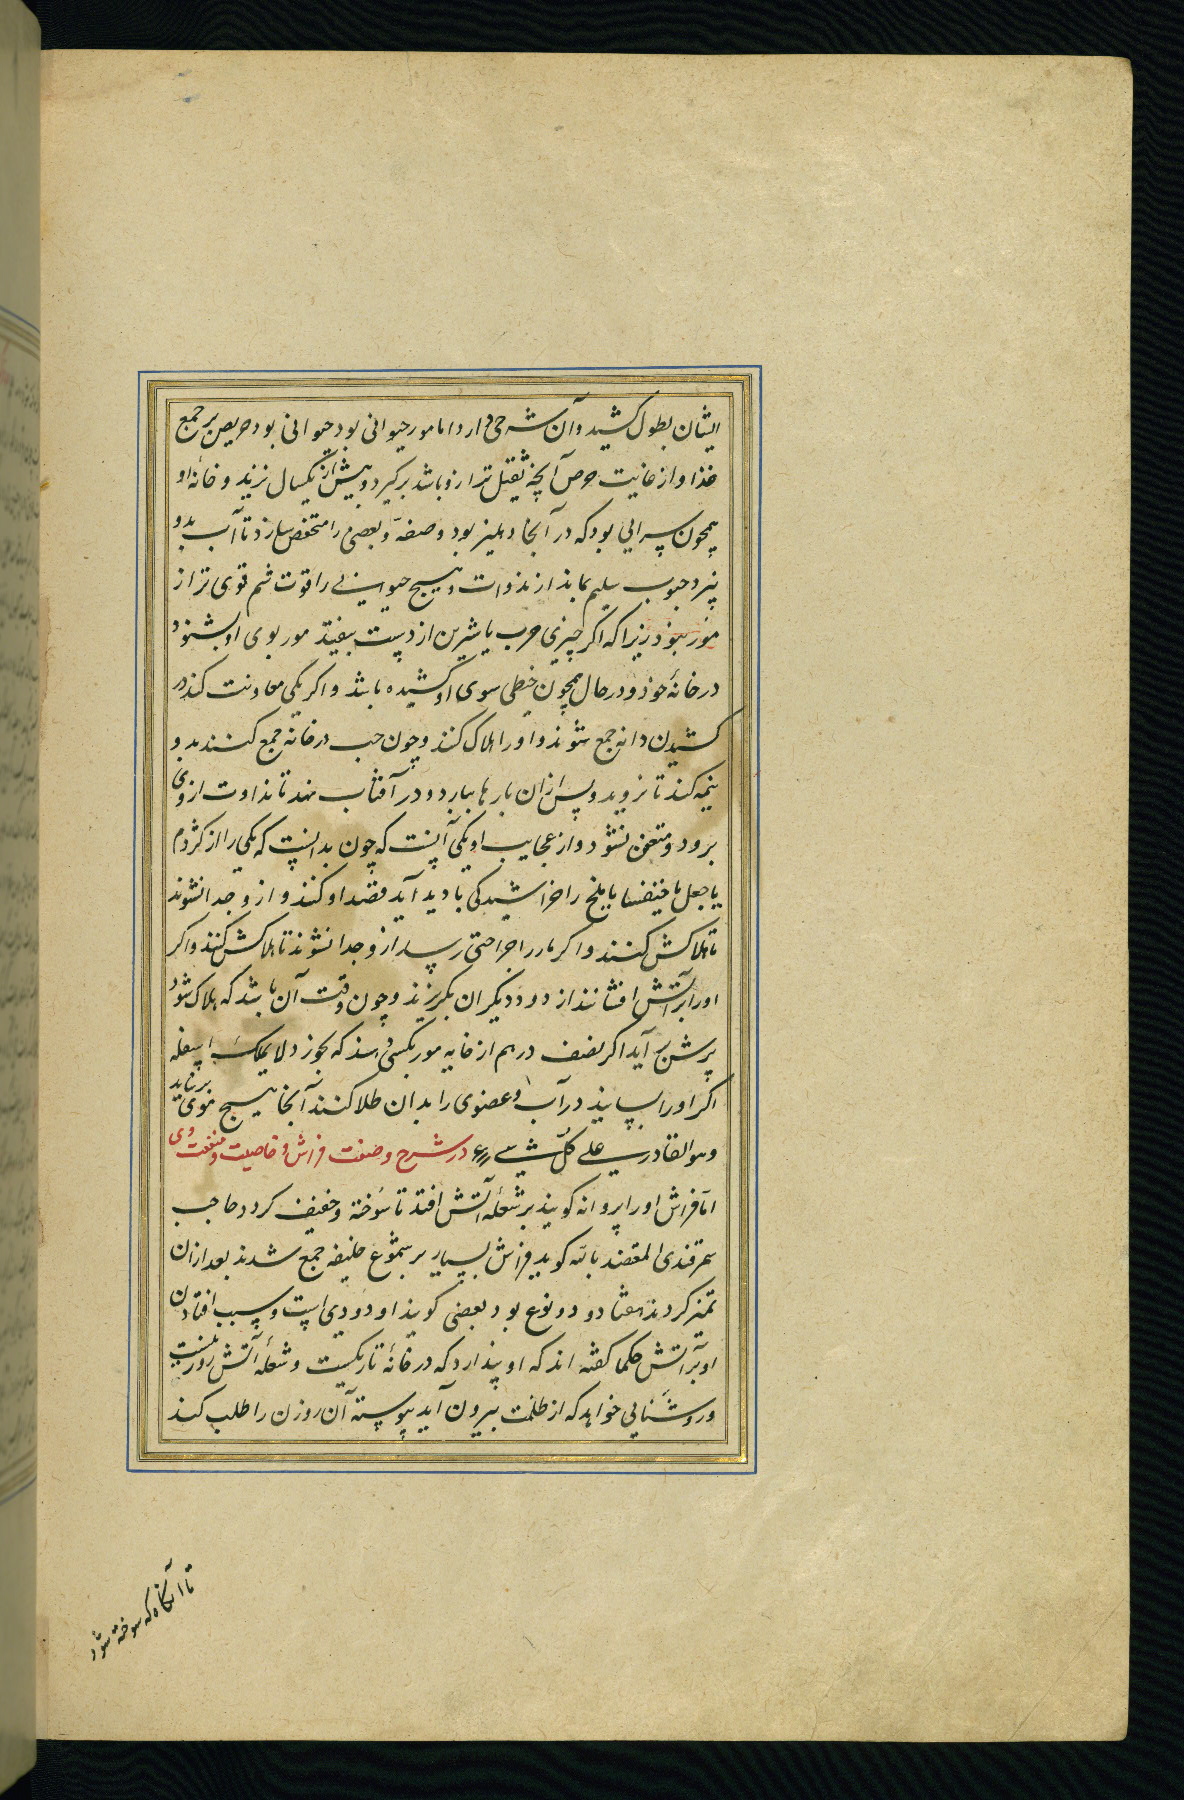 ایشان بطول کشید و آن شرحی دارد اما مور حیوانی بود حیوانی بود حریص بر جمع
غذا و از غایت حرص آنچه ثقیل تر ازو باشد برگیرد و بیش از یکسال نزید و خانهٔ او
همچون سرایی بود که در آنجا دهلیز بود و صفه و بعضی را منخفض سازد تا آب بدو
نبرد و حبوب سلیم بماند از نداوت و هیچ حیوانی را قوت شم قوی تر از
مور نبود زیرا که اکر چیزی چرب یا شیرین از دست بیفتد مور بوی او بشنود
در خانهٔ خود و در حال همچون خیطی سوی او کشیده باشد و اکر یکی معاونت کند در
کشیدن دانه جمع شوند و او را هلاک کنند و چون حب در خانه جمع کنند بدو
نیمه کند تا نروید و پس از ان بارها ببارد و در آفتاب نهد تا نداوت از وی
برود و متعفن نشود و از عجایب او یکی آنست که چون بدانست که یکی را از کژدم
یا جعل یا خنفسا یا ملخ را خراشیدکی بادید آید قصد او کنند و ازو جدا نشوند
تا هلاکش کنند و اکر مار را جراحتی رسد ازو جدا نشوند تا هلاکش کنند و اکر
او را بر آتش افشانند از دود دیکران بکریزند و چون وقت آن باشد که هلاک شود
پرش بر آید اکر نصف درهم از خایه مور بکسی دهند که بخورد لا یملک اسفله
اکر او را بسایند در آب و عضوی را بدان طلا کنند آنجا هیچ موی بر نیاید
وهو القادر علی کل شیء در شرح و صفت فراش و خاصیت و منفعت وی
اما فراش او را پروانه کویند بر شعلهٔ آتش افتد تا سوخته و خفیف کردد حاجب
سمرقندی المعتضد بالله کوید فراش بسیار بر شموع خلیفه جمع شدند بعد ازان
تمیز کردند هفتاد و دو نوع بود بعضی کویند او دودی است و سبب افتادن
او بر آتش حکما کفته اند که او پندارد که در خانهٔ تاریکیست و شعلهٔ آتش روزنیست
و روشنایی خواهد که از ظلمت بیرون آید پیوسته آن روزن را طلب کند
تا آنکاه که سوخته شود